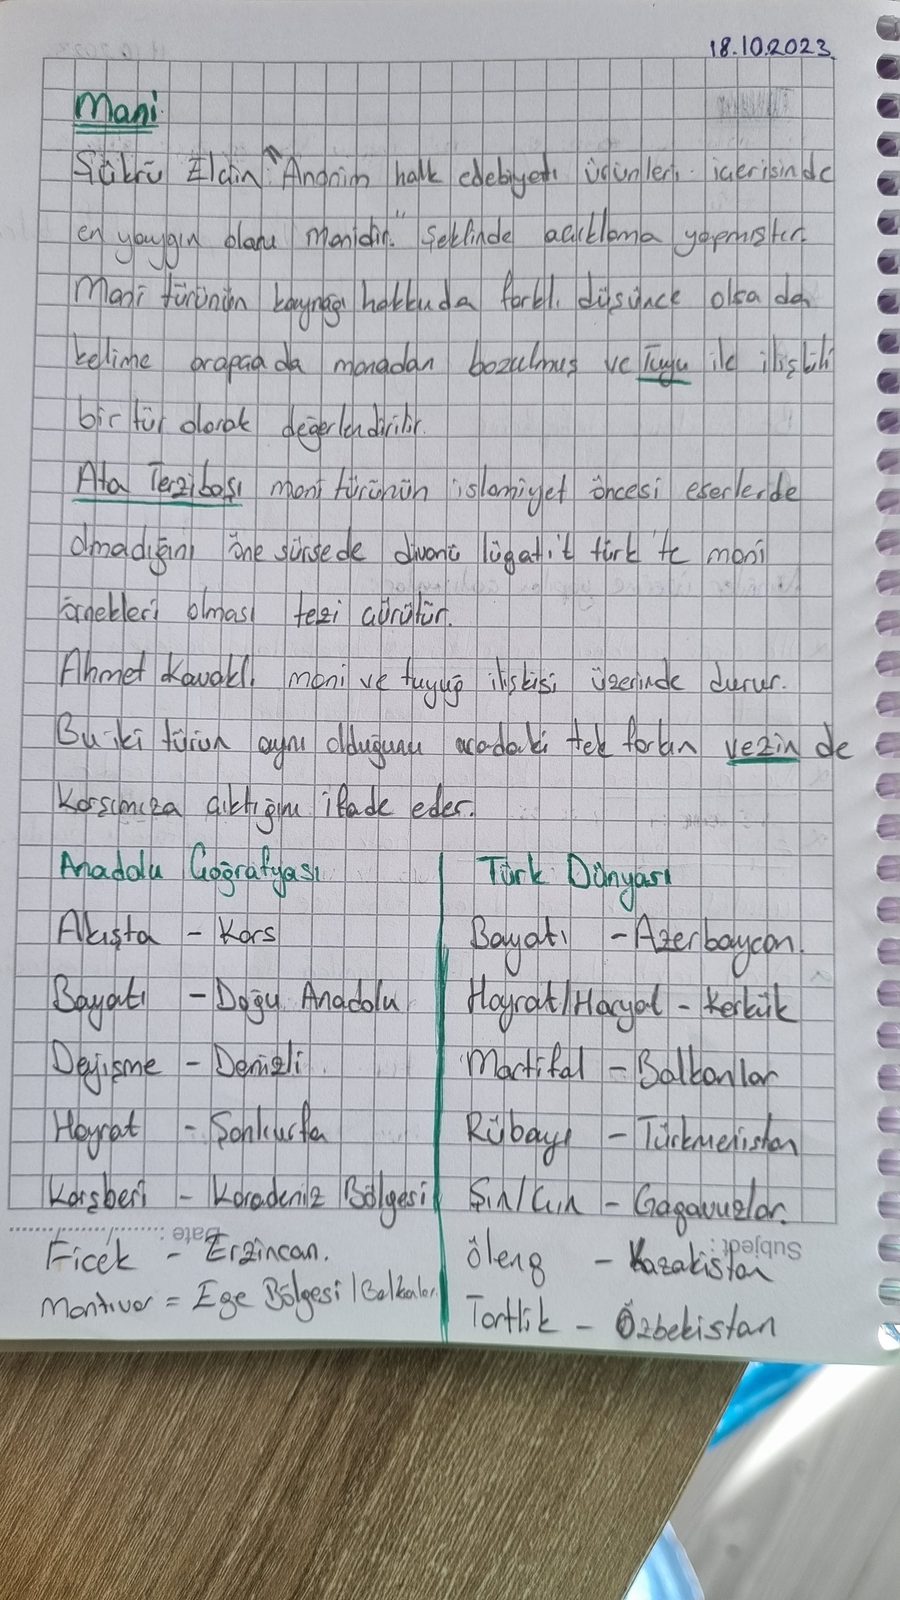 18.10.2023
Mani
Şükrü Elçin "Anonim halk edebiyatı ürünleri içerisinde
en yaygın olanı manidir." şeklinde açıklama yapmıştır.
Mani türünün kaynağı hakkında farklı düşünce olsa da
kelime arapça da manadan bozulmuş ve Tuyu ile ilişkili
bir tür olarak değerlendirilir.
Ata Terzibaşı mani türünün islamiyet öncesi eserlerde
olmadığını öne sürsede divanü lügati't türk'te mani
örnekleri olması tezi çürütür.
Ahmet Kavaklı mani ve tuyuğ ilişkisi üzerinde durur.
Bu iki türün aynı olduğunu aradaki tek farkın vezin de
karşımıza çıktığını ifade eder.
Anadolu Coğrafyası
Akışta - Kars
Bayatı - Doğu Anadolu
Deyişme - Denizli
Hoyrat - Şanlıurfa
Karşıberi - Karadeniz Bölgesi
Ficek - Erzincan.
Mantıvar = Ege Bölgesi / Balkanlar
Türk Dünyası
Bayatı - Azerbaycan.
Hoyrat/Horyat - Kerkük
Martifal - Balkanlar
Rübayı - Türkmenistan
Şın/Çın - Gagavuzlar.
Öleng - Kazakistan
Tortlik - Özbekistan
Date :
Subject :